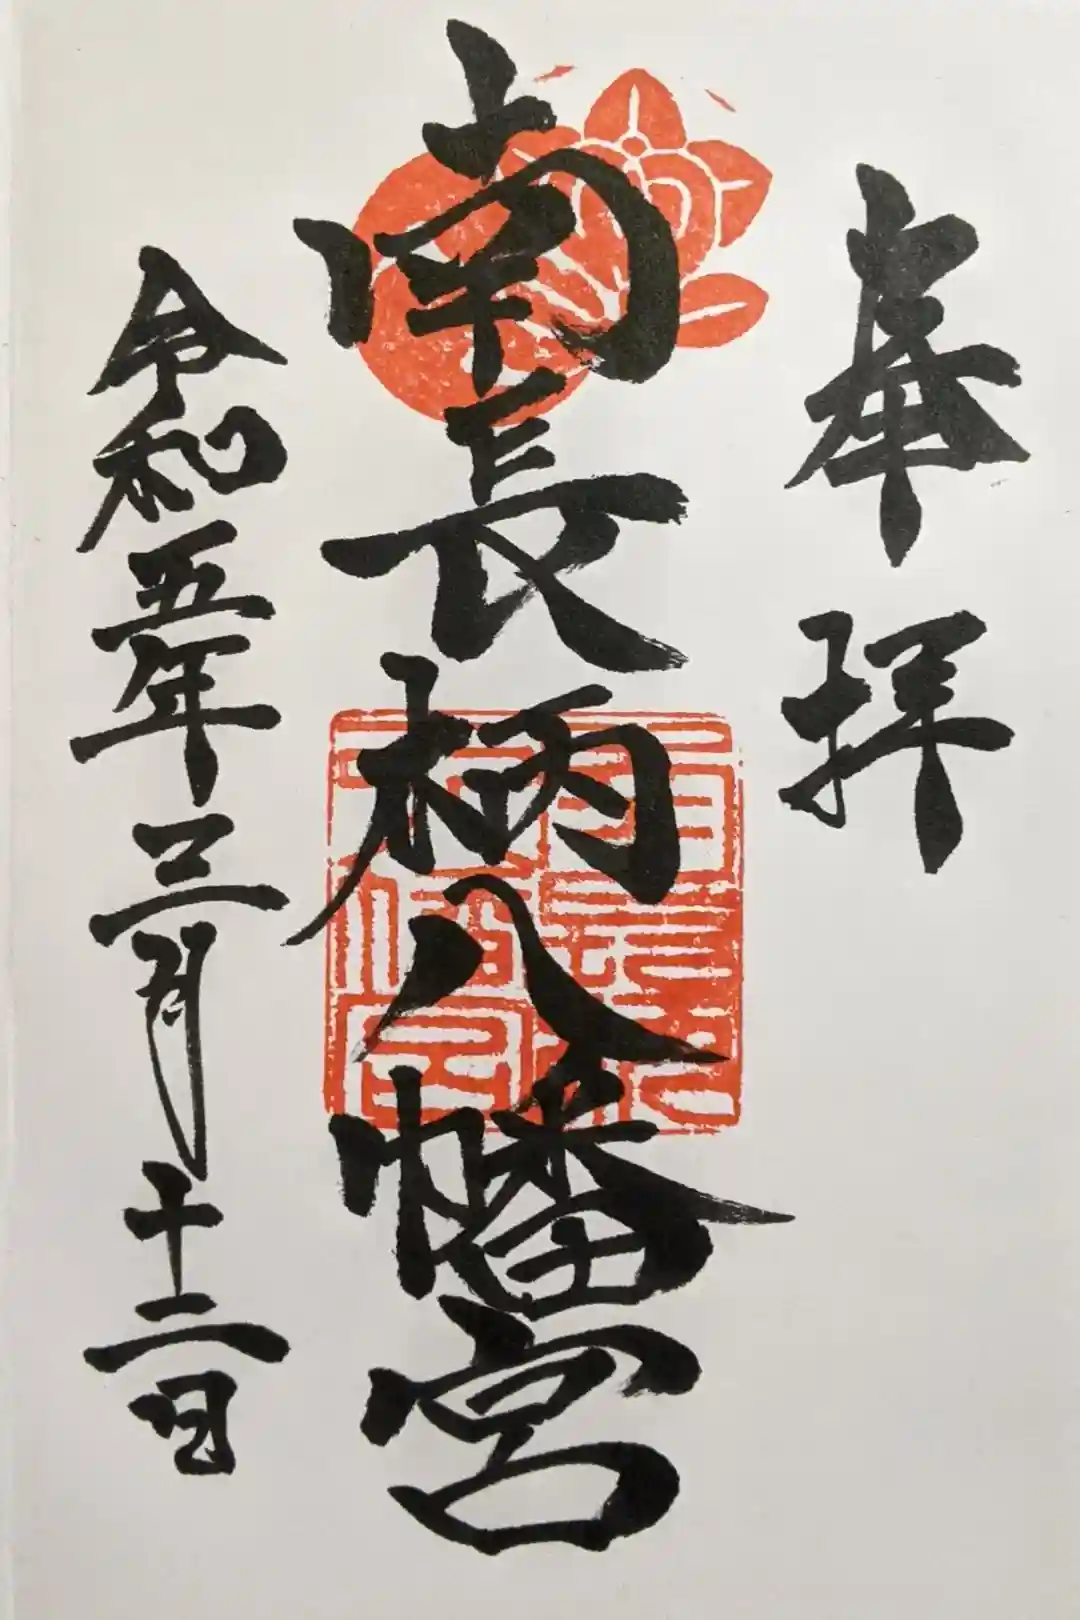 奉拝
南長柄八幡宮
令和五年三月十二日